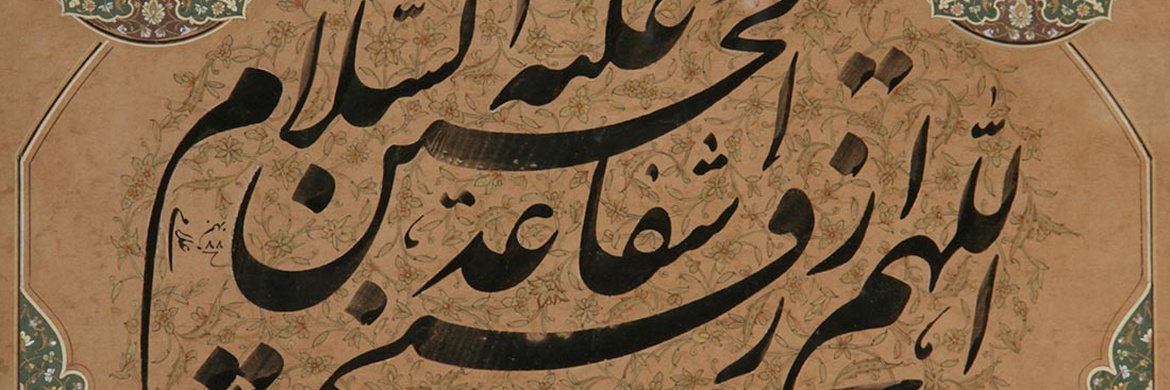 اللهم ارزقنی شفاعة
الحسین علیه السلام